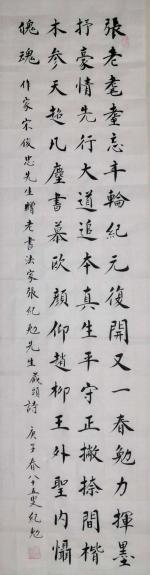 張老耄耋忘年輪紀元復開又一春勉力揮墨
抒豪情先行大道追本真生平守正撇捺間楷
木参天超凡塵書慕欧顏仰趙柳王外聖内懾
魄魂 作家宋俊忠先生贈老書法家張紀勉先生藏頭詩 庚子春八十五叟紀勉